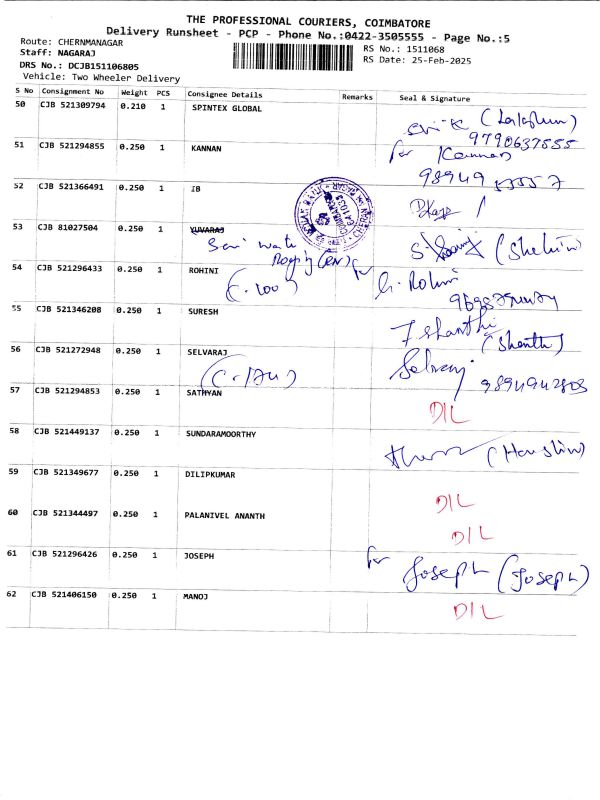 THE PROFESSIONAL COURIERS, COIMBATORE
Delivery Runsheet - PCP - Phone No.:0422-3505555 - Page No.:5
Route: CHERNMANAGAR
RS No.: 1511068
Staff: NAGARAJ
RS Date: 25-Feb-2025
DRS No.: DCJB151106805
Vehicle: Two Wheeler Delivery
S No Consignment No Weight PCS Consignee Details Remarks Seal & Signature
50 CJB 521309794 0.210 1 SPINTEX GLOBAL
9790637555
51 CJB 521294855 0.250 1 KANNAN for Kannan
52 CJB 521366491 0.250 1 IB
53 CJB 81027504 0.250 1 YUVARAJ
54 CJB 521296433 0.250 1 ROHINI for G. Rohini
55 CJB 521346208 0.250 1 SURESH
(Shanthi)
56 CJB 521272948 0.250 1 SELVARAJ Selvaraj
57 CJB 521294853 0.250 1 SATHYAN D/L
58 CJB 521449137 0.250 1 SUNDARAMOORTHY
59 CJB 521349677 0.250 1 DILIPKUMAR D/L
60 CJB 521344497 0.250 1 PALANIVEL ANANTH D/L
61 CJB 521296426 0.250 1 JOSEPH for Joseph (Joseph)
62 CJB 521406150 0.250 1 MANOJ D/L